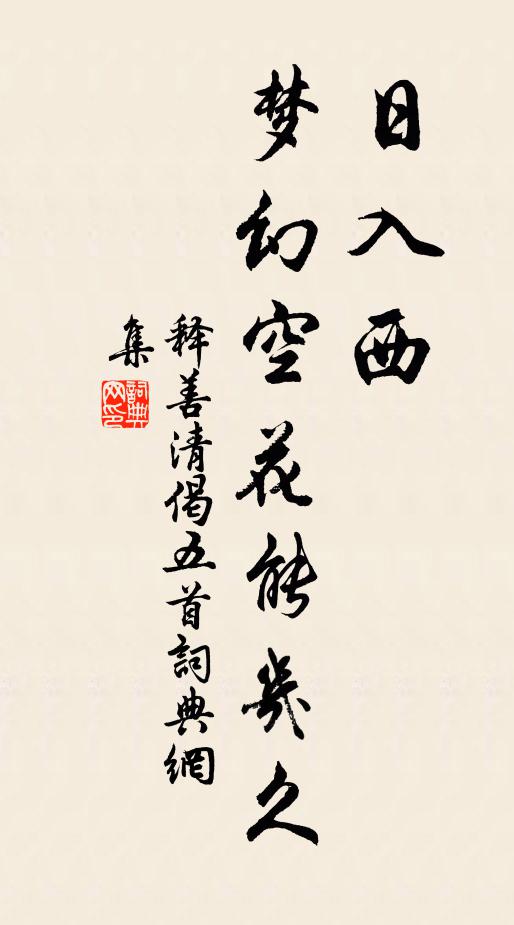 日入西
梦幻空花能幾久
释善清偈五首詞典網
集
詞典
网印